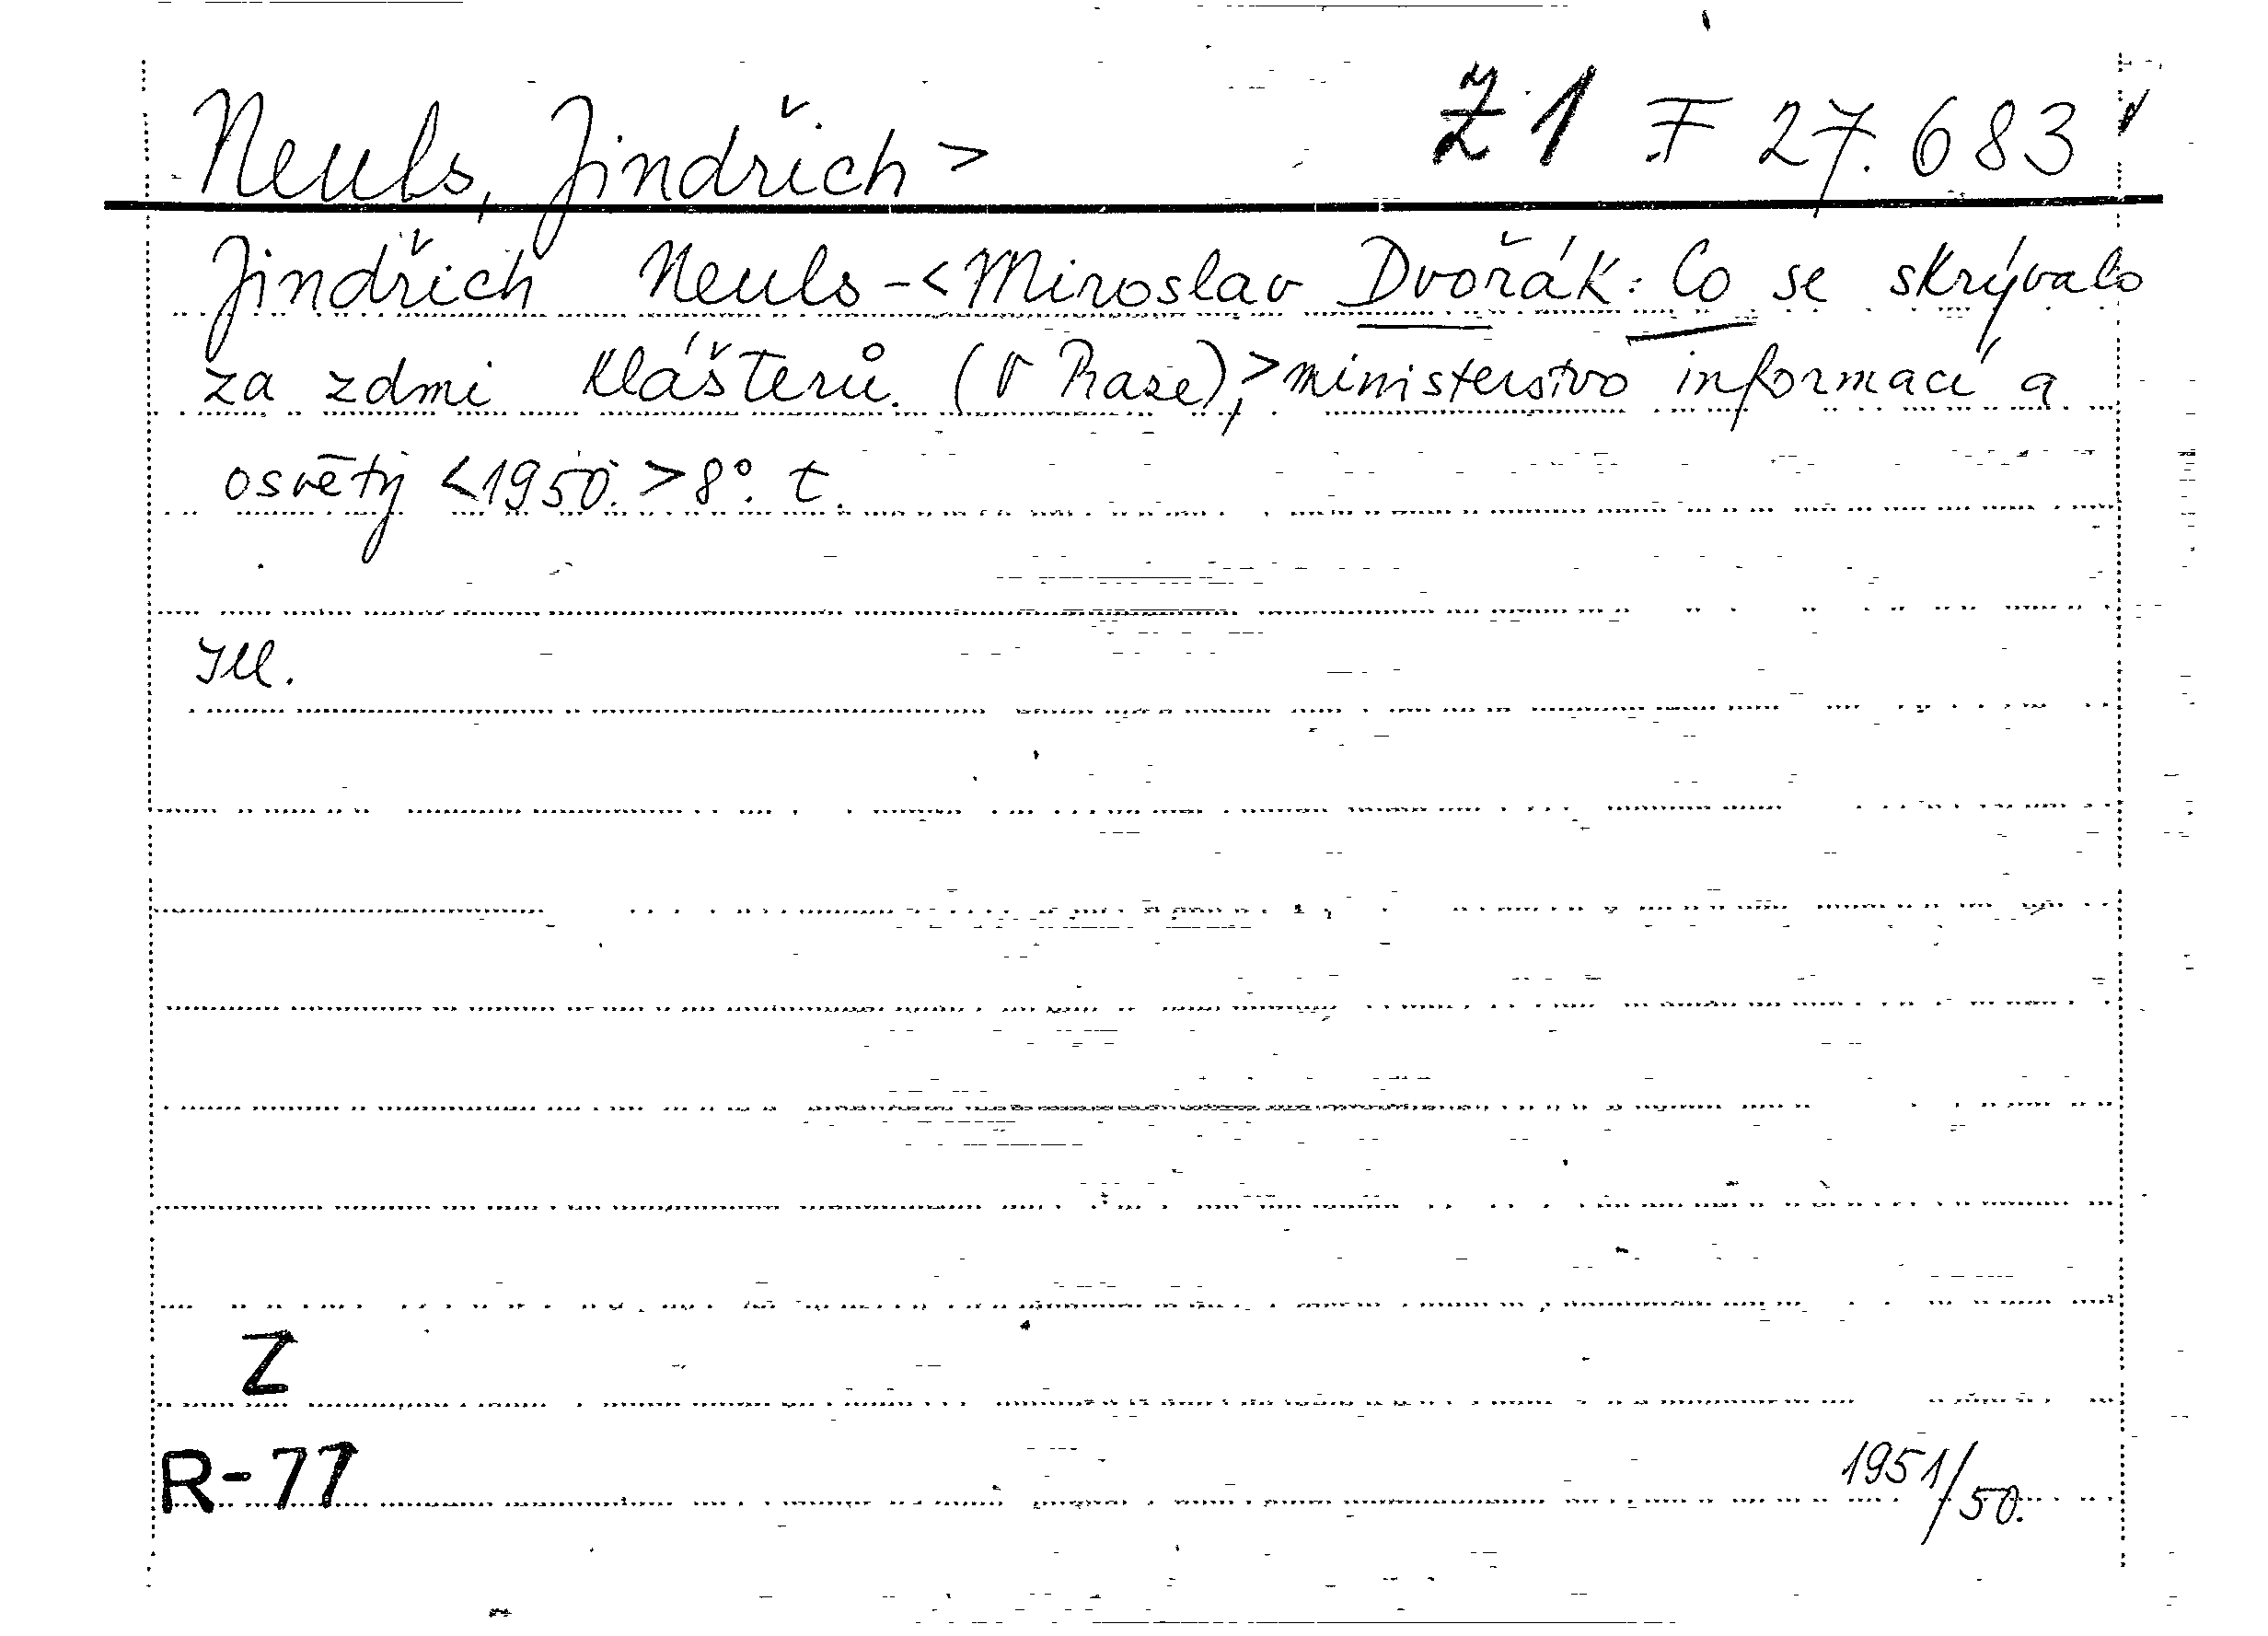 Neuls, Jindřich > Ž 1 F 27.683
Jindřich Neuls - < Miroslav Dvořák: Co se skrývalo
za zdmi klášterů. (V Praze), > ministerstvo informací a
osvěty < 1950. > 8°. t.
Ill.
Z
R-77
1951/50.